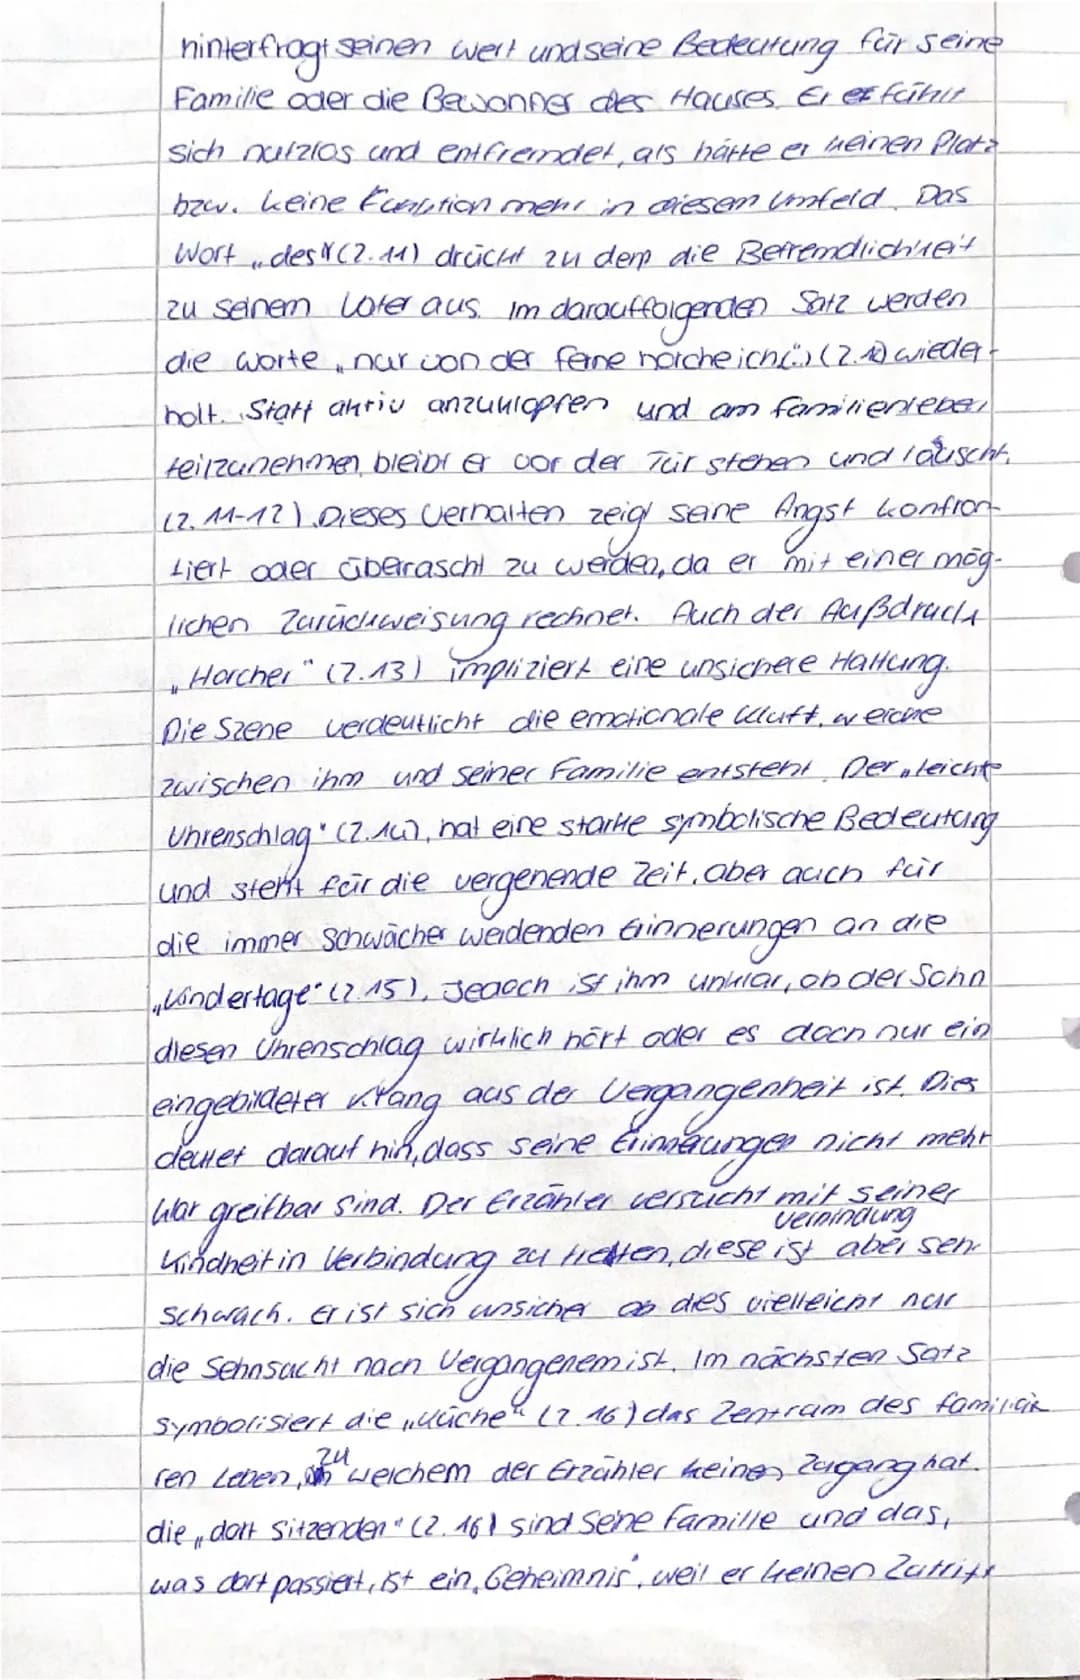 hinterfragt seinen Wert und seine Bedeutung für seine
Familie oder die Bewohner des Hauses. Er fühlt
sich nutzlos und entfremdet, als hätte er keinen Platz
bzw. keine Funktion mehr in diesem Umfeld. Das
Wort „des" (Z. 11) drückt zu dem die Befremdlichkeit
zu seinem Vater aus. Im darauffolgenden Satz werden
die Worte „nur von der Ferne horche ich(..) (Z. 12) wieder-
holt. Statt aktiv anzuklopfen und am Familienleben
teilzunehmen, bleibt er vor der Tür stehen und lauscht.
(Z. 11-12). Dieses Verhalten zeigt seine Angst konfron-
tiert oder überrascht zu werden, da er mit einer mög-
lichen Zurückweisung rechnet. Auch der Außdruck
„Horcher" (Z.13) impliziert eine unsichere Haltung.
Die Szene verdeutlicht die emotionale Kluft, welche
zwischen ihm und seiner Familie entsteht. Der „leichte
Uhrenschlag" (Z.14), hat eine starke symbolische Bedeutung
und steht für die vergehende Zeit, aber auch für
die immer schwächer werdenden Erinnerungen an die
„Kindertage" (Z.15). Jedoch ist ihm unklar, ob der Sohn
diesen Uhrenschlag wirklich hört oder es doch nur ein
eingebildeter Klang aus der Vergangenheit ist. Dies
deutet darauf hin, dass seine Erinnerungen nicht mehr
klar greifbar sind. Der Erzähler versucht mit seiner
Verbindung
Kindheit in Verbindung zu tretten, diese ist aber sehr
schwach. Er ist sich unsicher ob dies vielleicht nur
die Sehnsucht nach Vergangenem ist. Im nächsten Satz
symbolisiert die „Küche" (Z. 16) das Zentrum des familiä
ren Leben, zu welchem der Erzähler keinen Zugang hat.
die „dort Sitzenden" (Z. 16) sind seine Familie und das,
was dort passiert, ist ein „Geheimnis", weil er keinen Zutritt